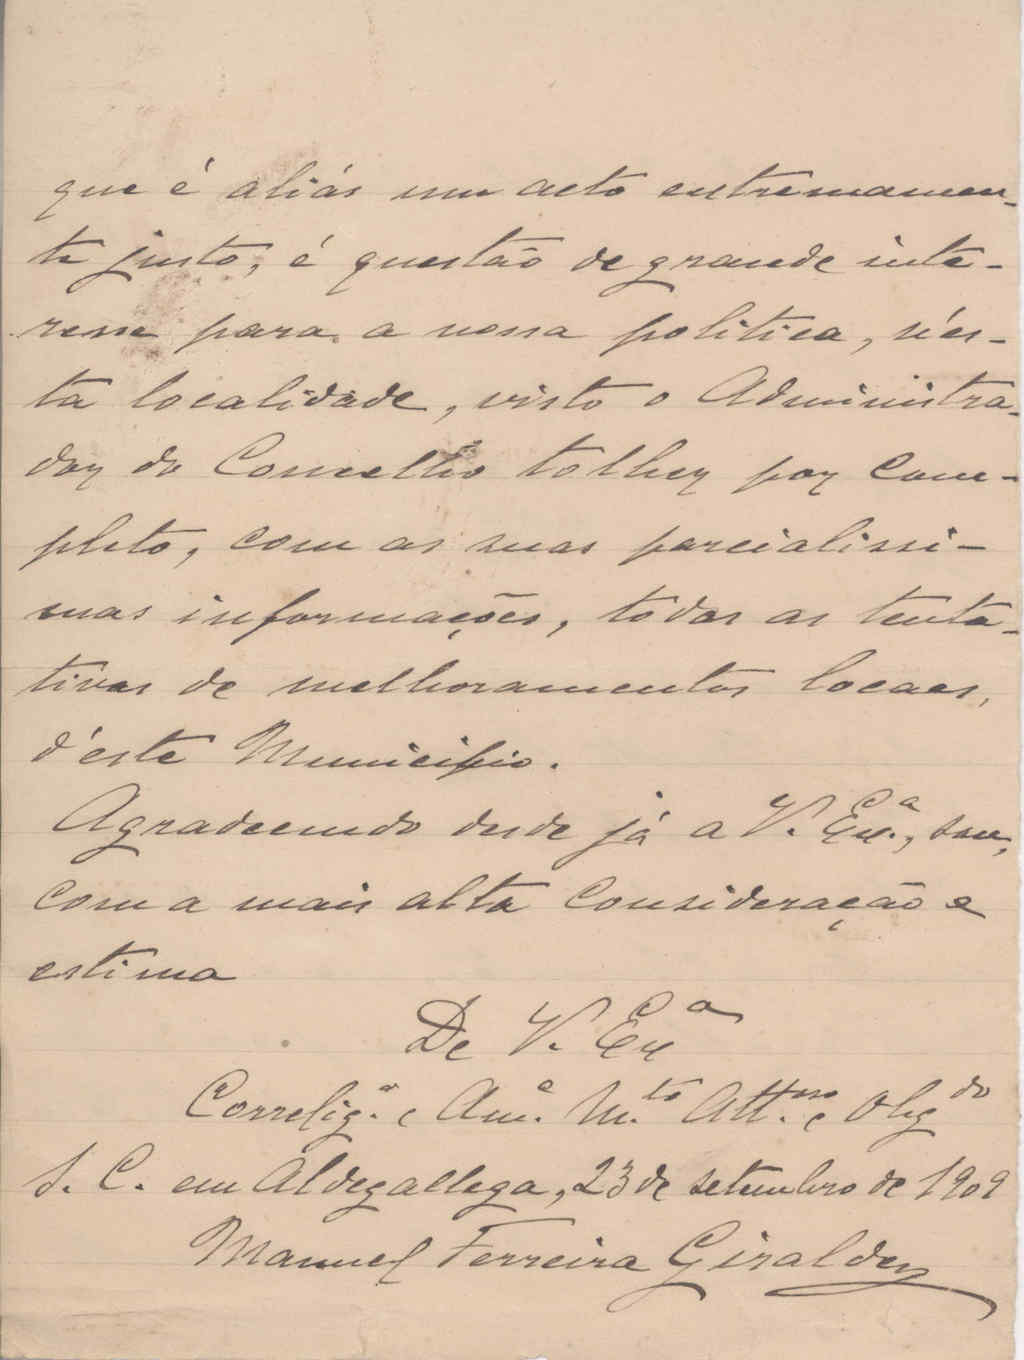 que é aliás um acto extremamen-
te justo, é questão de grande inte-
resse para a nossa politica, n'es-
ta localidade, visto o Administra-
dor do Concelho tolher por com-
pleto, com as suas parcialissi-
mas informações, todas as tenta-
tivas de melhoramentos locaes,
d'este Municipio.
Agradecendo desde já a V. Ex.ª, sou,
com a mais alta consideração e
estima
De V. Exª
Correlig.º e Am.º M.to Att.oso e Obgdo
S. C. em Aldegallega, 23 de setembro de 1909
Manuel Ferreira Giraldes